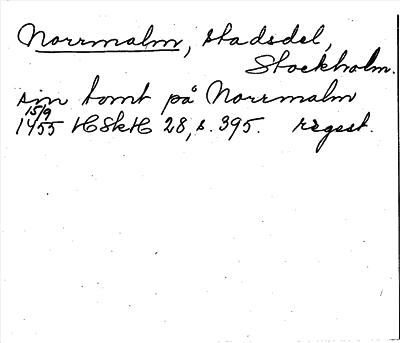 Norrmalm, stadsdel,
Stockholm.
sin tomt på Norrmalm
15/9
1455 HSkH 28, s. 395. regest.